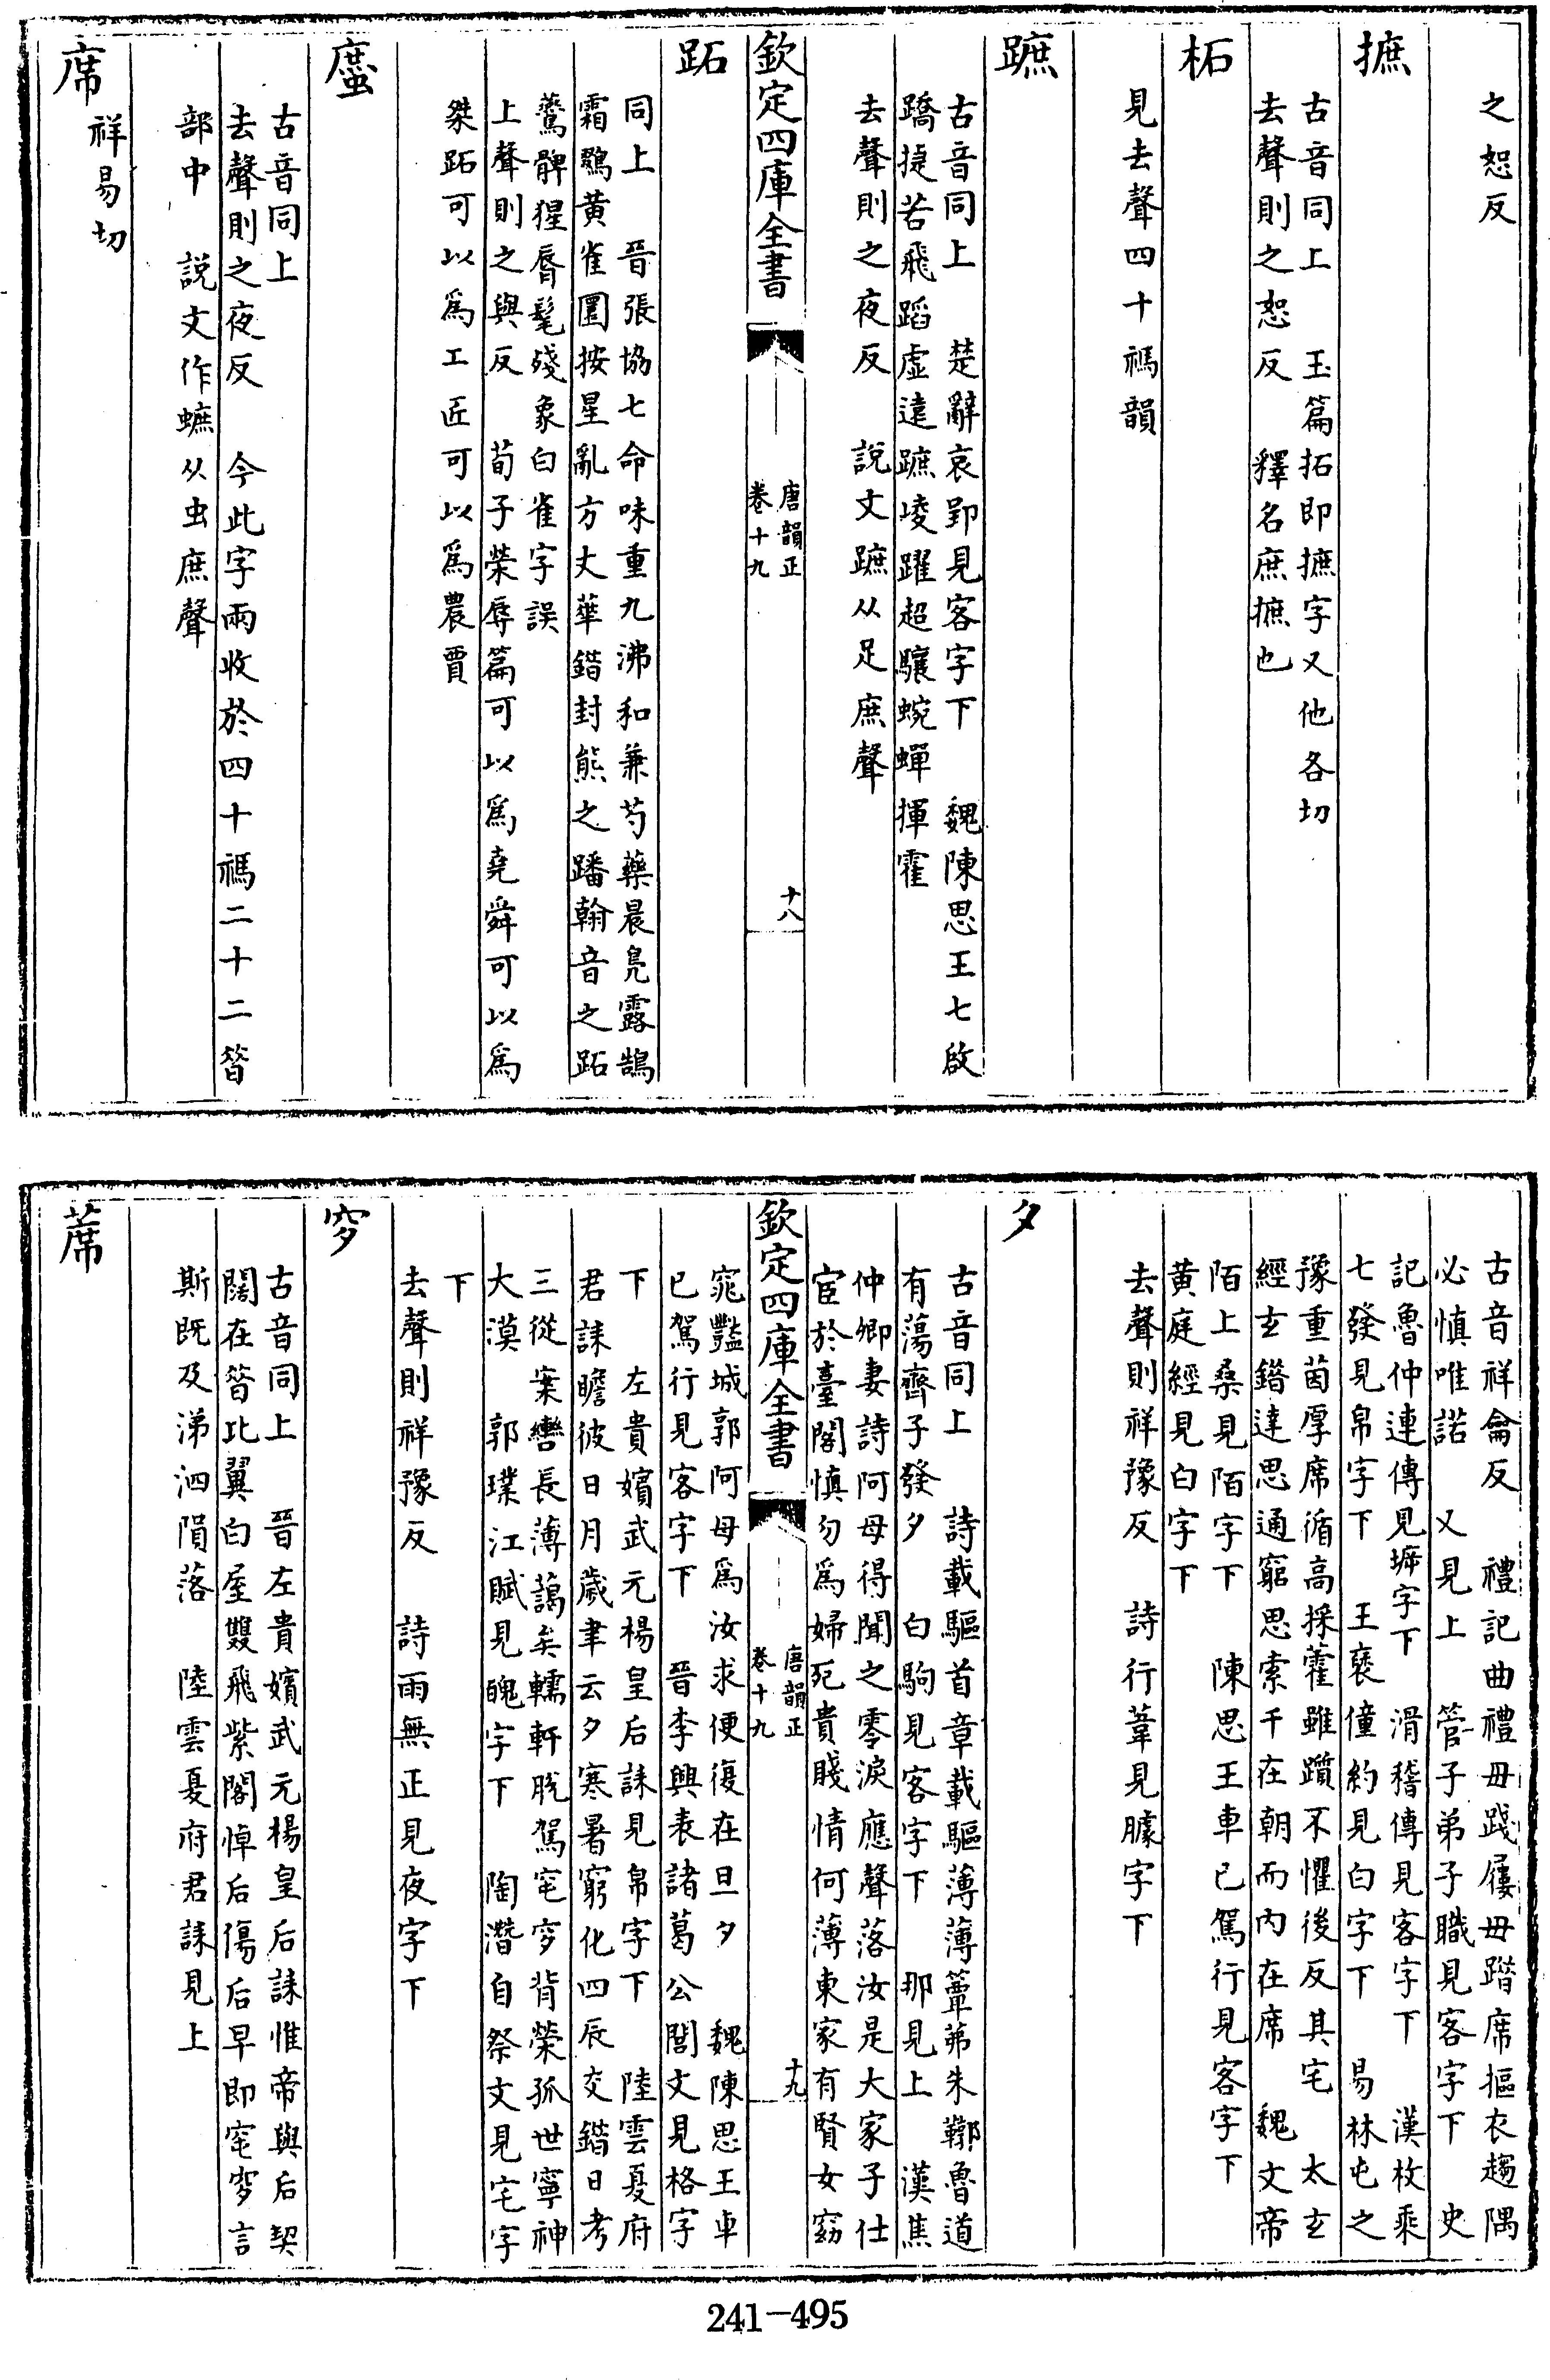 之恕反
摭
古音同上　玉篇拓即摭字又他各切
去聲則之恕反　釋名庶摭也
柘
見去聲四十禡韻
蹠
古音同上　楚辭哀郢見客字下　魏陳思王七啟
蹻捷若飛蹈虛遠蹠崚躍超驤蜿蟬揮霍
去聲則之夜反　說文蹠从足庶聲
欽定四庫全書
唐韻正
卷十九
十八
跖
同上　晉張協七命味重九沸和兼芍藥晨鳧露鵠
霜鷃黃雀圜按星亂方丈華錯封熊之蹯翰音之跖
鷰髀猩脣髦殘象白雀字誤
上聲則之與反　荀子榮辱篇可以爲堯舜可以爲
桀跖可以爲工匠可以爲農賈
䗪
古音同上
去聲則之夜反　今此字兩收於四十禡二十二昝
部中　說文作蟅从虫庶聲
席
祥易切
古音祥龠反　禮記曲禮毋踐屨毋踖席摳衣趨隅
必慎唯諾　又見上　管子弟子職見客字下　史
記魯仲連傳見㙤字下　滑稽傳見客字下　漢枚乘
七發見帛字下　王襃僮約見白字下　易林屯之
豫重茵厚席循高採藿雖躓不懼後反其宅　太玄
經玄錯達思通窮思索千在朝而內在席　魏文帝
陌上桑見陌字下　陳思王車已駕行見客字下
黃庭經見白字下
去聲則祥豫反　詩行葦見臄字下
夕
古音同上　詩載驅首章載驅薄薄簟茀朱鞹魯道
有蕩齊子發夕　白駒見客字下　那見上　漢焦
仲卿妻詩阿母得聞之零淚應聲落汝是大家子仕
宦於臺閣慎勿爲婦死貴賤情何薄東家有賢女窈
欽定四庫全書
唐韻正
卷十九
十九
窕豔城郭阿母爲汝求便復在旦夕　魏陳思王車
已駕行見客字下　晉李興表諸葛公閭文見格字
下　左貴嬪武元楊皇后誄見帛字下　陸雲夏府
君誄瞻彼日月歲聿云夕寒暑窮化四辰交錯日考
三從案轡長薄藹矣轜軒脫駕窀穸背榮孤世寧神
大漠　郭璞江賦見魄字下　陶潛自祭文見宅字
下
去聲則祥豫反　詩雨無正見夜字下
穸
古音同上　晉左貴嬪武元楊皇后誄惟帝與后契
闊在昝比翼白屋雙飛紫閣悼后傷后早即窀穸言
斯既及涕泗隕落　陸雲夏府君誄見上
蓆
241-495